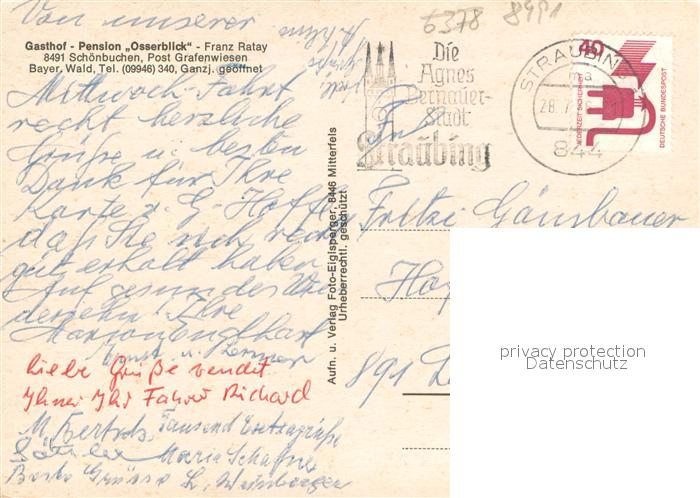 Von unserer
Gasthof - Pension „Osserblick“ - Franz Ratay
8491 Schönbuchen, Post Grafenwiesen
Bayer. Wald, Tel. (09946) 340, Ganzj. geöffnet
Mittwoch-Fahrt
recht herzliche
Grüße u. besten
Dank für Ihre
Karte
daß Sie sich recht
gut erholt haben
Auf gesundes Wie
dersehn Ihre
liebe Grüße sendet
Ihnen Ihr Fahrer Richard
Tausend Extragrüße
Maria
Beste Grüsse
Aufn. u. Verlag Foto-Eiglsperger, 8446 Mitterfels
Urheberrechtl. geschützt.
6378 8491
Die
Agnes
Bernauer-
Stadt
Straubing
STRAUBING
ma
28.7.
844
40
JEDERZEIT SICHERHEIT
DEUTSCHE BUNDESPOST
Frl.
Fritzi Gänsbauer
891
privacy protection
Datenschutz